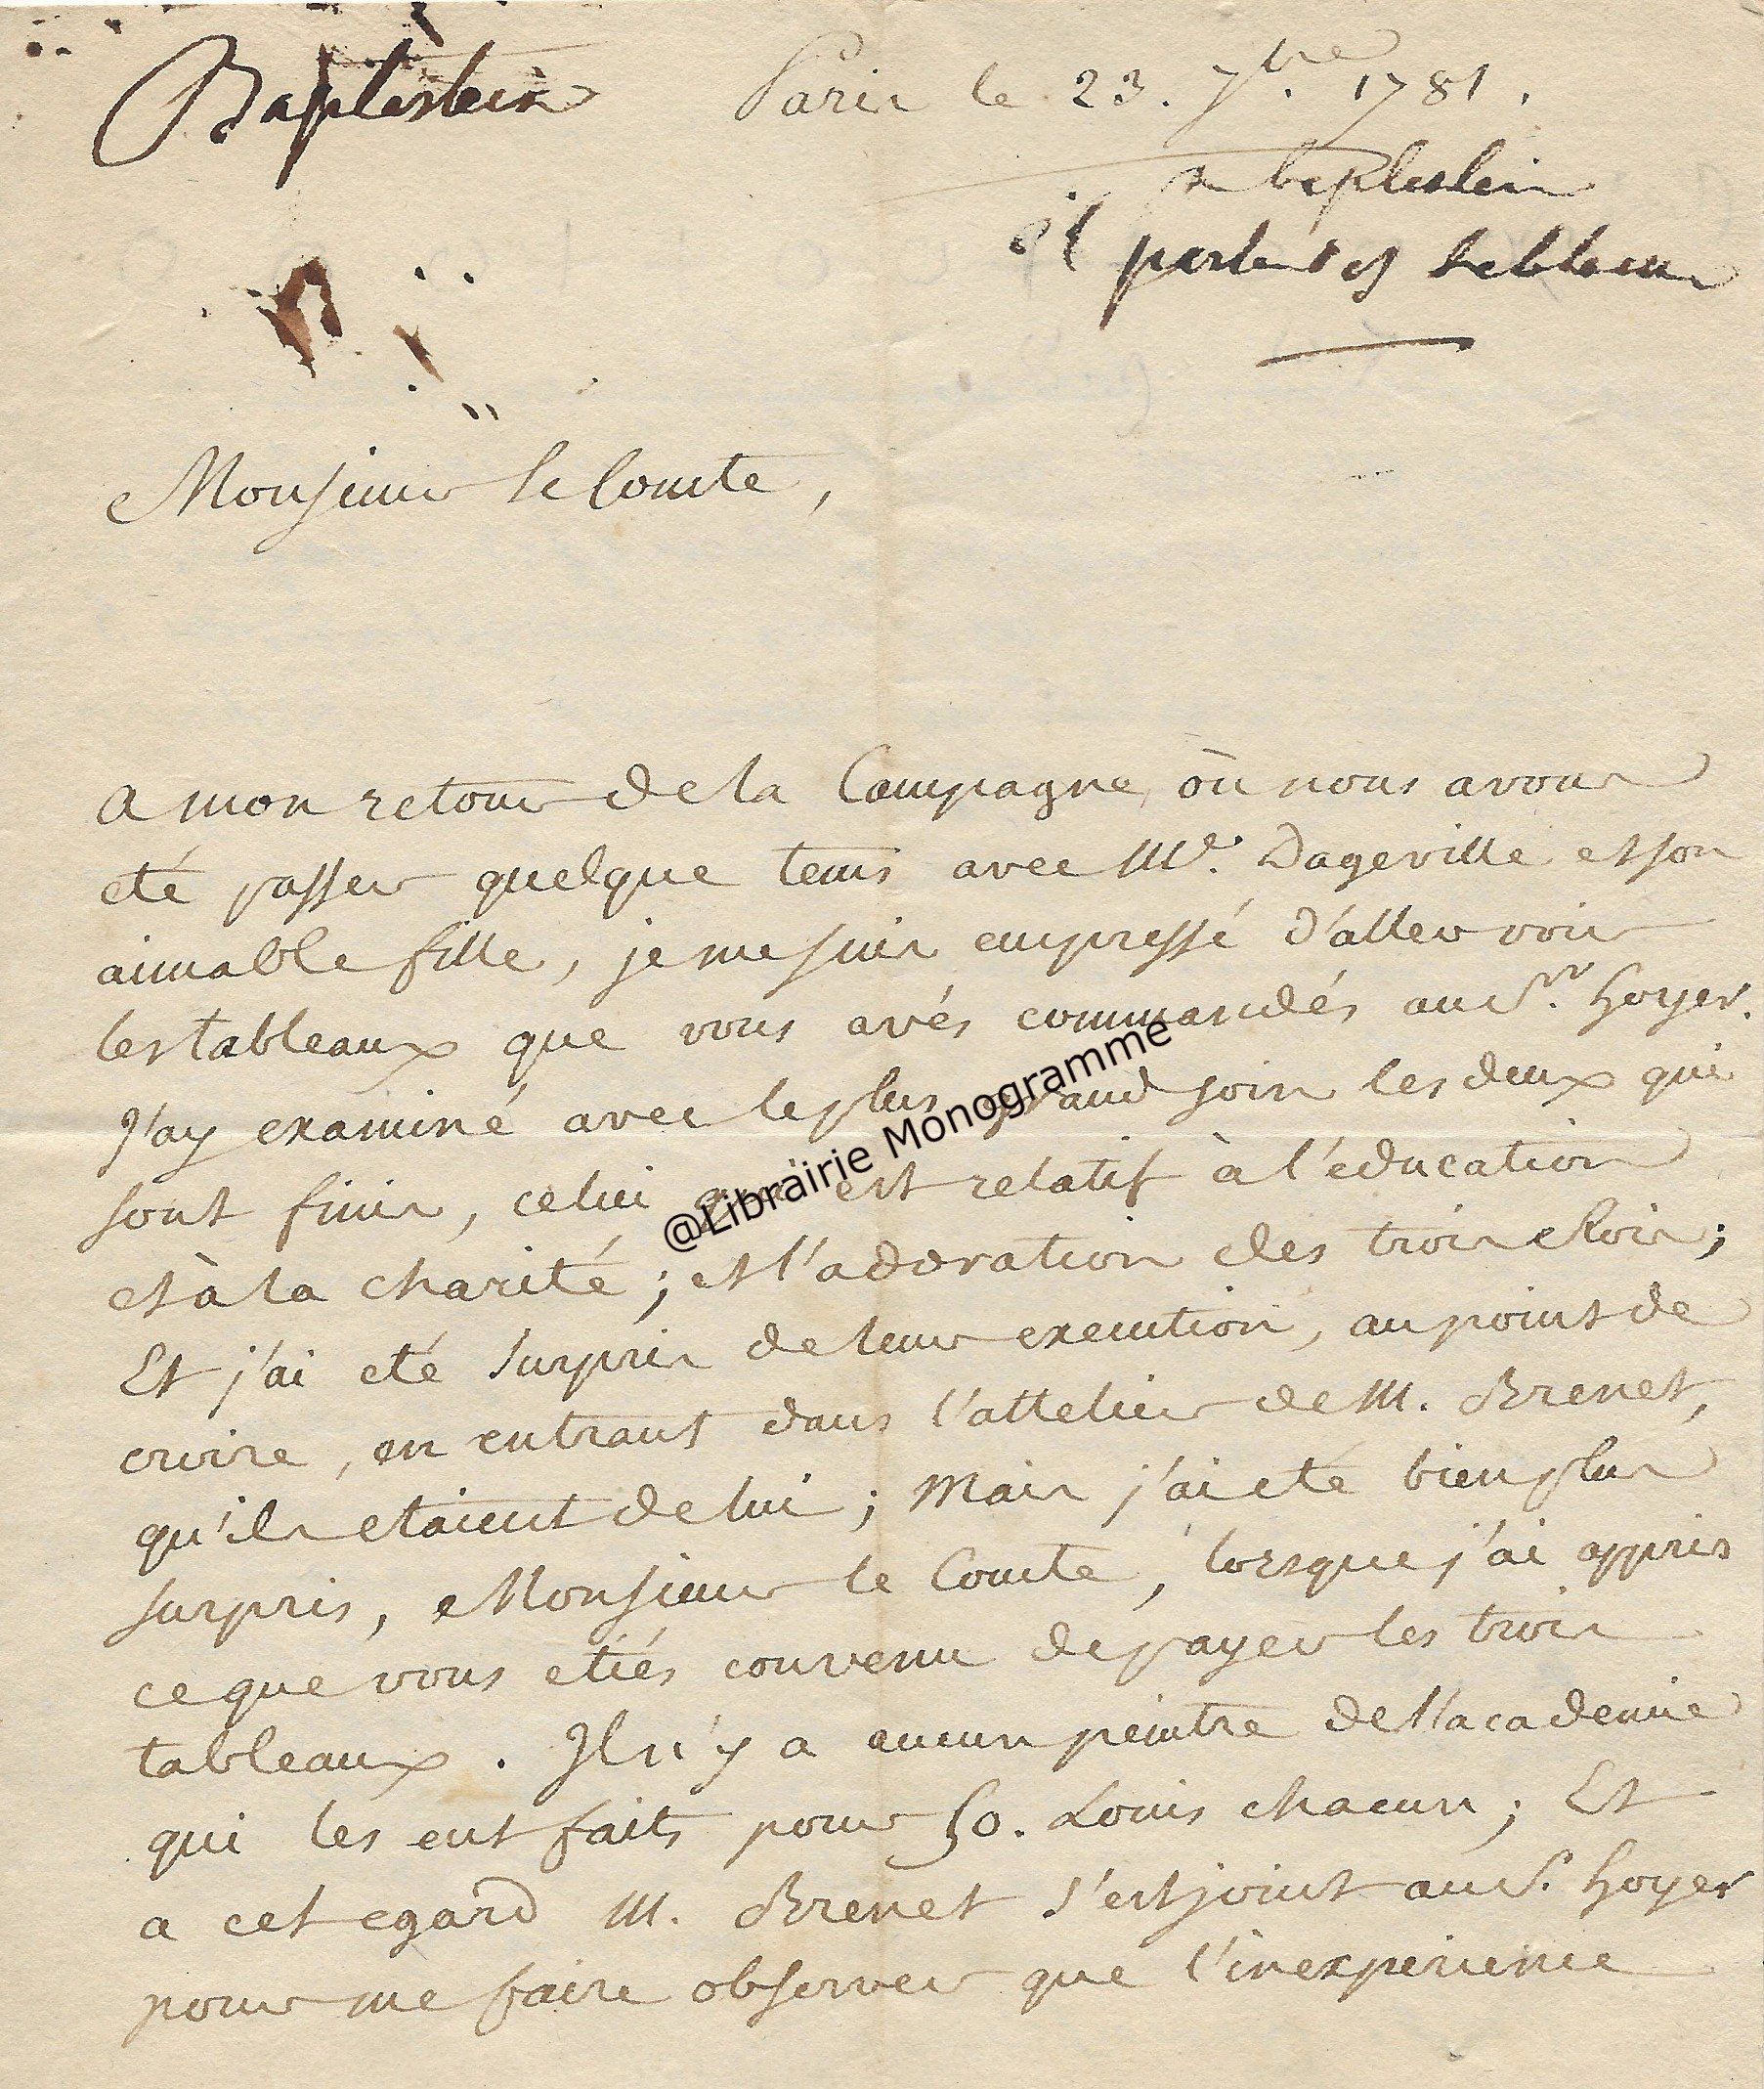 Baptestein
Paris le 23. 7bre. 1781.
baptestein
il parle des tableaux
Monsieur le Comte,
A mon retour de la Campagne, où nous avons
eté passer quelque tems avec Me. Dageville et son
aimable fille, je me suis empressé d'aller voir
les tableaux que vous avés commandés au Sr. Hoyer.
J'ay examiné avec le plus grand soin les deux qui
sont finis, celui qui est relatif à l'éducation
et à la charité; et l'adoration des trois Rois;
Et j'ai eté surpris de leur execution, au point de
croire, en entrant dans l'attelier de M. Brenet,
qu'ils etaient de lui; Mais j'ai eté bien plus
surpris, Monsieur le Comte, lorsque j'ai appris
ce que vous etiés convenu de payer les trois
tableaux. Il n'y a aucun peintre de l'academie
qui les eut faits pour 50. Louis chacun; Et
a cet egard M. Brenet s'est joint au S. Hoyer
pour me faire observer que l'inexperience
@Librairie Monogramme